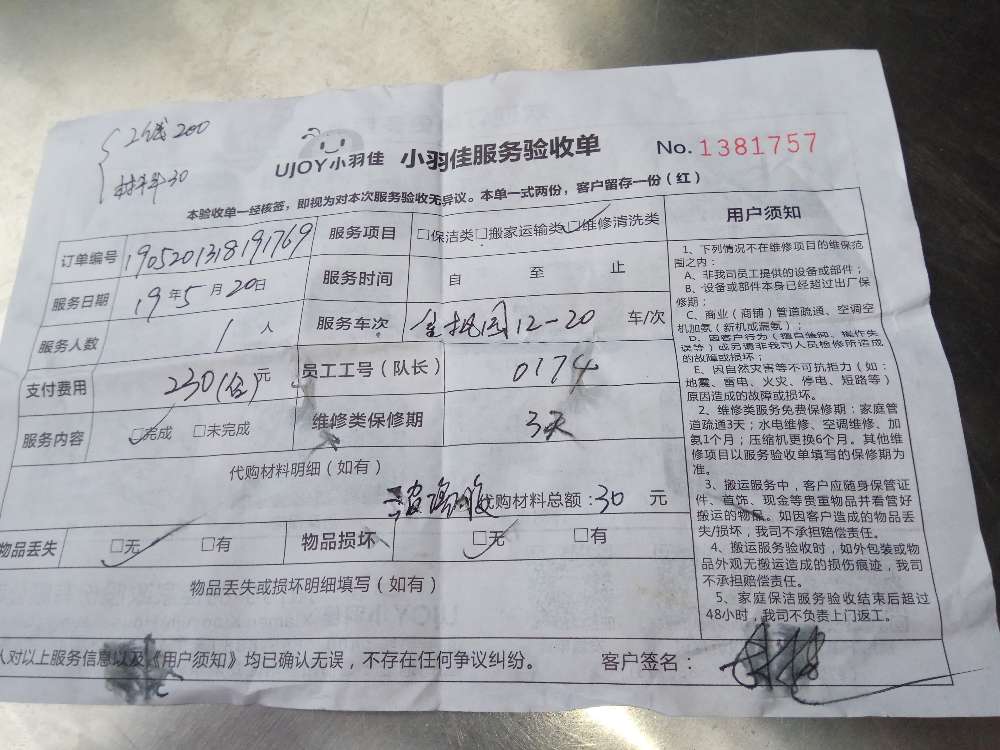 工钱200
材料30
UJOY小羽佳 小羽佳服务验收单 No. 1381757
本验收单一经核签，即视为对本次服务验收无异议。本单一式两份，客户留存一份（红）
订单编号 1905201318191769 服务项目 □保洁类□搬家运输类□维修清洗类
服务日期 19年5月20日 服务时间 自 至 止
服务人数 1人 服务车次 12-20 车/次
支付费用 230(含)元 员工工号（队长） 0174
服务内容 □完成 □未完成 维修类保修期 3天
代购材料明细（如有）
代购材料总额：30元
物品丢失 □无 □有 物品损坏 □无 □有
物品丢失或损坏明细填写（如有）
人对以上服务信息以及《用户须知》均已确认无误，不存在任何争议纠纷。 客户签名：
用户须知
1、下列情况不在维修项目的维保范
围之内：
A、非我司员工提供的设备或部件；
B、设备或部件本身已经超过出厂保
修期；
C、商业（商铺）管道疏通、空调空
机加氨（新机或漏氨）；
D、因客户行为（擅自维修、操作失
误等）或另请非我司人员检修所造成
的故障或损坏；
E、因自然灾害等不可抗拒力（如：
地震、雷电、火灾、停电、短路等）
原因造成的故障或损坏。
2、维修类服务免费保修期：家庭管
道疏通3天；水电维修、空调维修、加
氨1个月；压缩机更换6个月。其他维
修项目以服务验收单填写的保修期为
准。
3、搬运服务中，客户应随身保管证
件、首饰、现金等贵重物品并看管好
搬运的物品。如因客户造成的物品丢
失/损坏，我司不承担赔偿责任。
4、搬运服务验收时，如外包装或物
品外观无搬运造成的损伤痕迹，我司
不承担赔偿责任。
5、家庭保洁服务验收结束后超过
48小时，我司不负责上门返工。